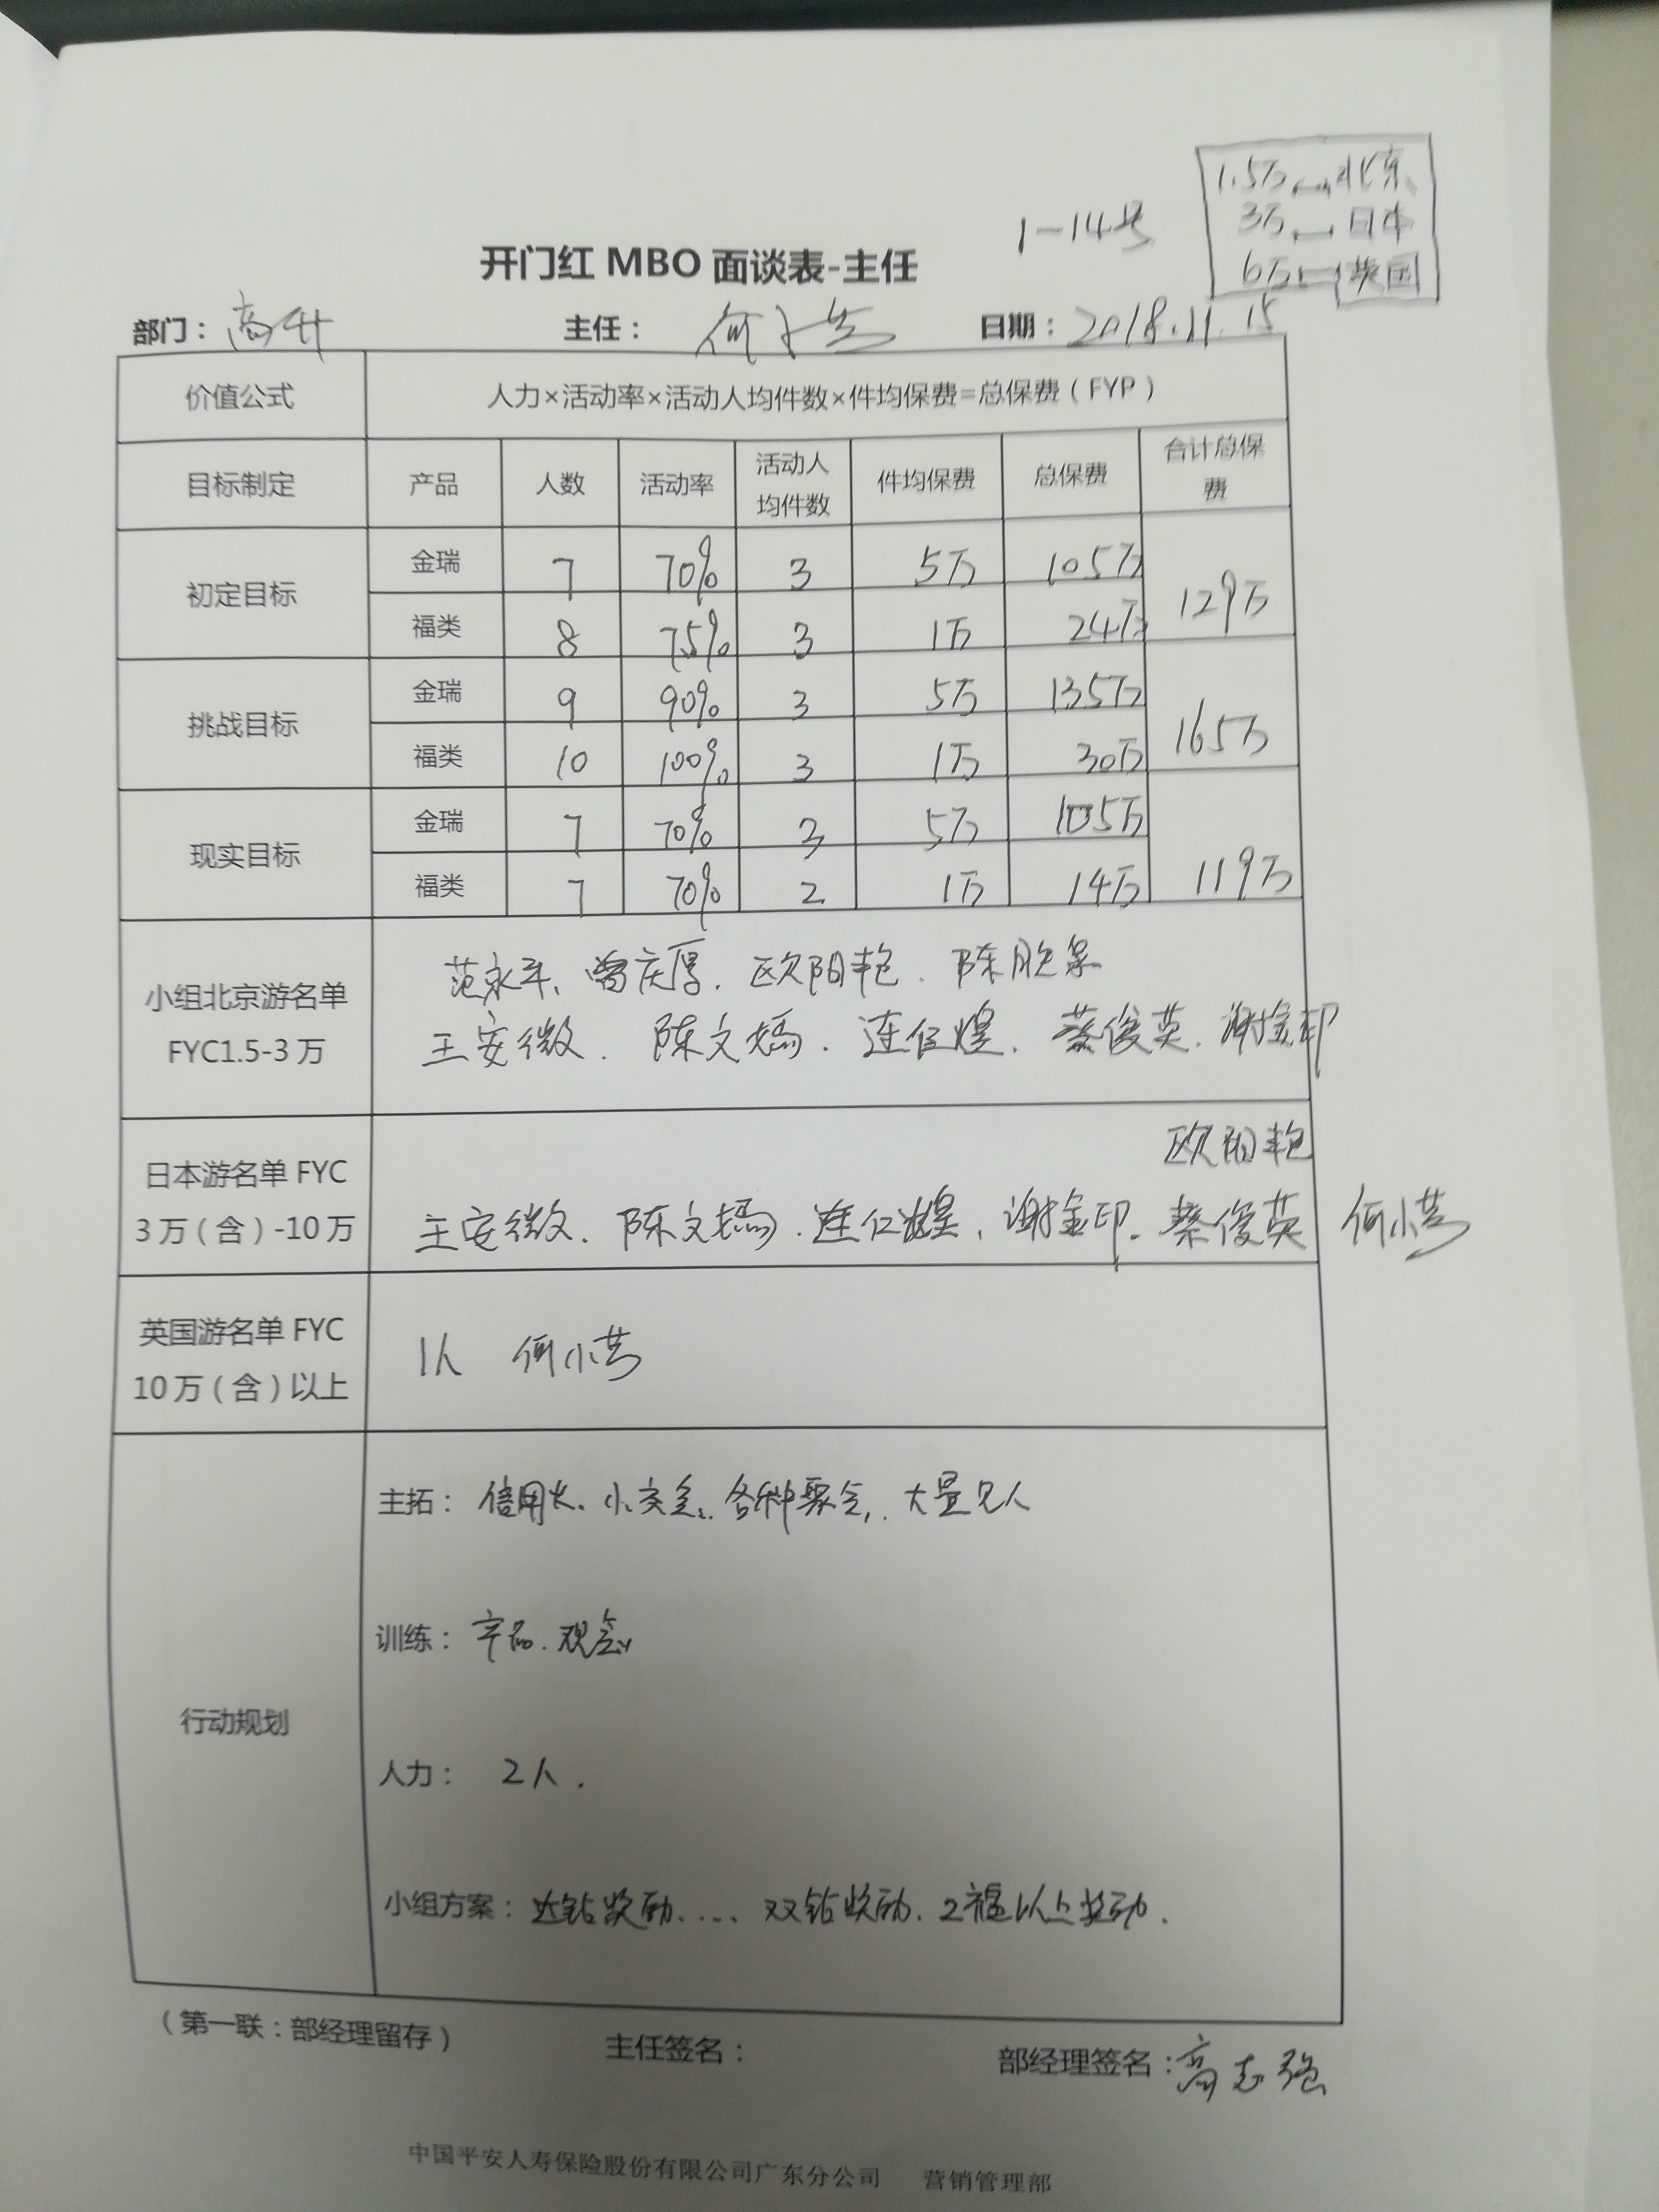 1.5万——北京
3万——日本
6万——英国
1-14号
开门红 MBO 面谈表-主任
部门：高升 主任：何小 日期：2018.11.15
价值公式 人力×活动率×活动人均件数×件均保费=总保费（FYP）
目标制定 产品 人数 活动率 活动人均件数 件均保费 总保费 合计总保费
初定目标 金瑞 7 70% 3 5万 105万 129万
福类 8 75% 3 1万 24万
挑战目标 金瑞 9 90% 3 5万 135万 165万
福类 10 100% 3 1万 30万
现实目标 金瑞 7 70% 3 5万 105万 119万
福类 7 70% 2 1万 14万
小组北京游名单
FYC1.5-3 万
范永平、曾庆厚、欧阳艳、陈
王安微、陈文嫣、连仁煌、蔡俊英、谢金印
日本游名单 FYC
3 万（含）-10 万
欧阳艳
王安微、陈文嫣、连仁煌、谢金印、蔡俊英 何小
英国游名单 FYC
10 万（含）以上
1人 何小
行动规划
主拓：信用卡、小交会、各种聚会、大量见人
训练：产品、观念
人力：2人.
小组方案：达钻奖励、…、双钻奖励、2福以上奖励.
（第一联：部经理留存） 主任签名： 部经理签名：高志强
中国平安人寿保险股份有限公司广东分公司 营销管理部